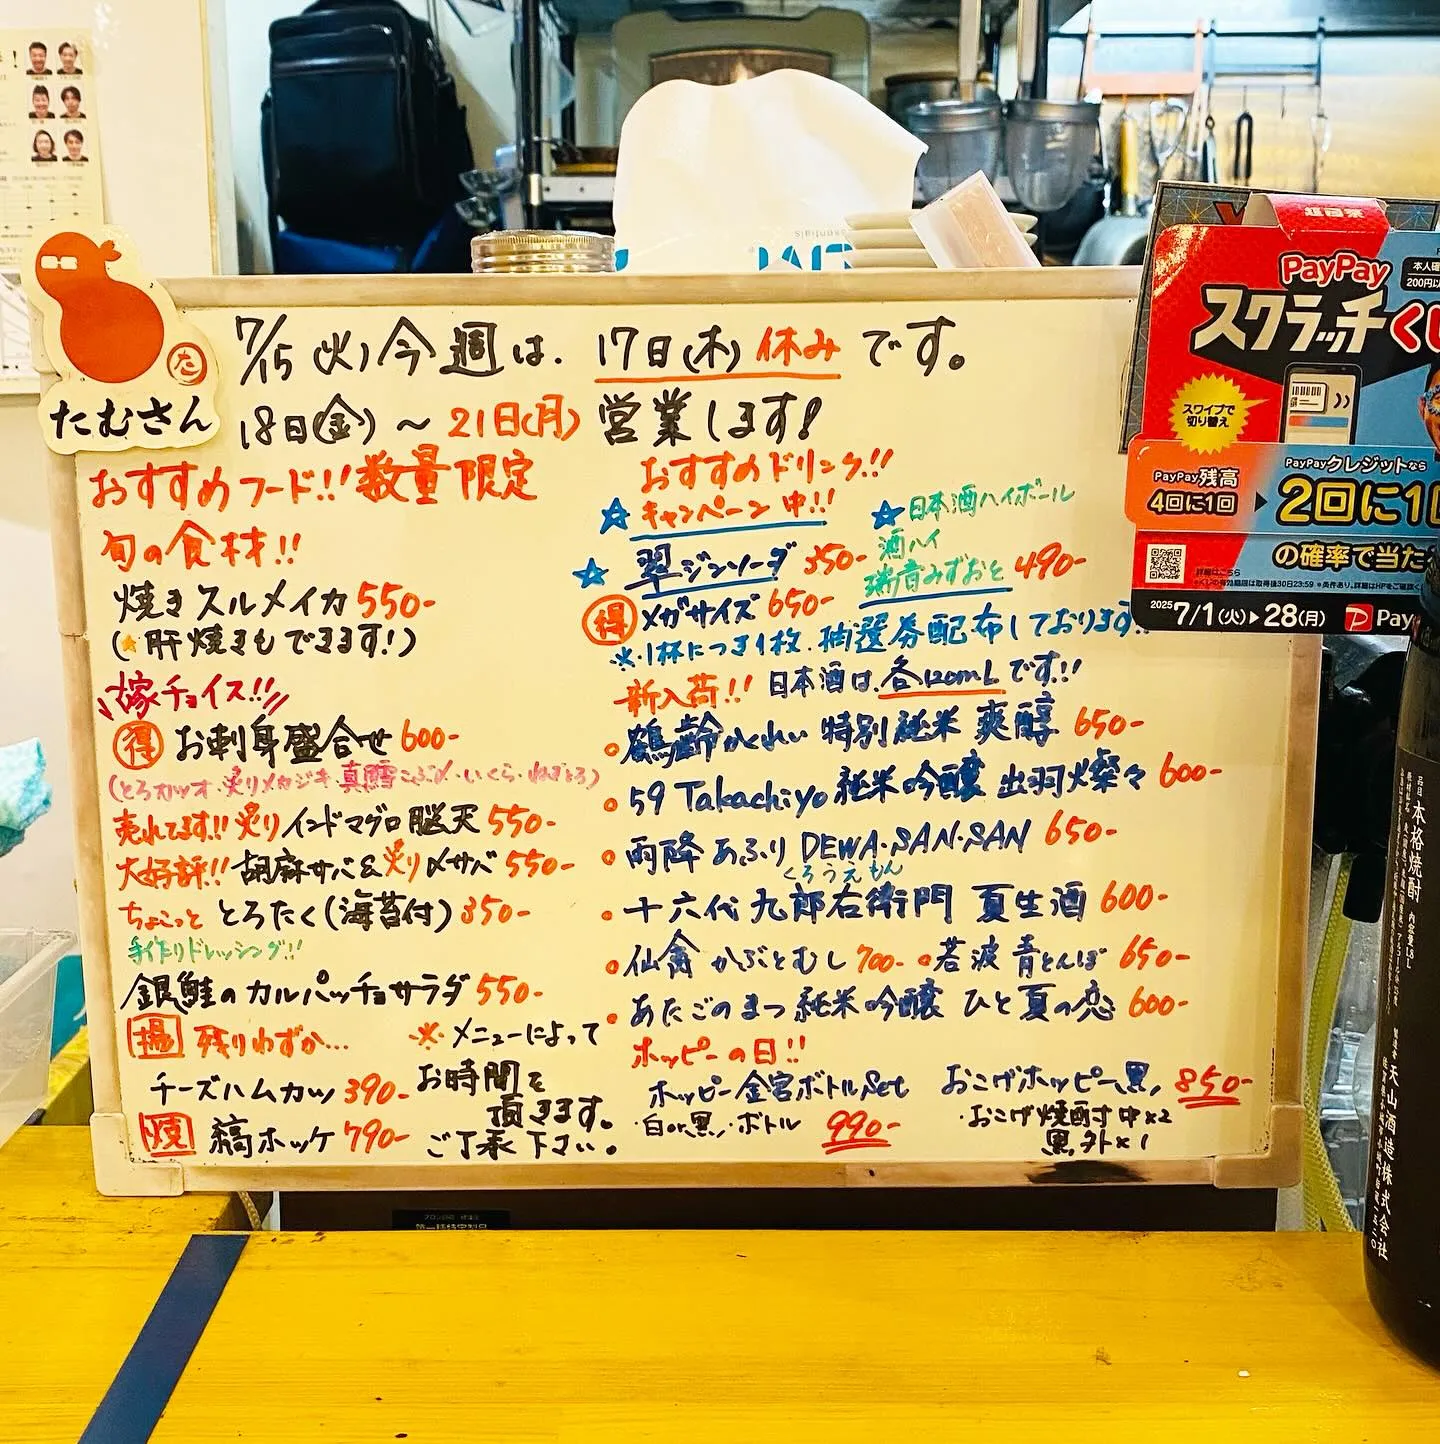 た
たむさん
7/15(火)今週は、17日(木)休みです。
18日(金)～21日(月)営業します!
おすすめフード!!数量限定
旬の食材!!
焼きスルメイカ550-
(★肝焼きもできます!)
嫁チョイス!!
得 お刺身盛合せ600-
(とろカツオ・炙りメカジキ・真鱈こぶ〆・いくら・ねぎとろ)
売れてます!!炙りインドマグロ脳天550-
大好評!!胡麻サバ&炙り〆サバ550-
ちょこっと とろたく(海苔付)350-
手作りドレッシング!!
銀鮭のカルパッチョサラダ550-
揚 残りわずか…
チーズハムカツ390-
焼 縞ホッケ790-
※メニューによって
お時間を
頂きます。
ご了承下さい。
おすすめドリンク!!
☆キャンペーン中!!
☆翠ジンソーダ350-
得 メガサイズ650-
☆日本酒ハイボール
酒ハイ
瑞音みずおと490-
※1杯につき1枚、抽選券配布しております!!
新入荷!! 日本酒は、各120mLです!!
○鶴齢かくれい 特別純米 爽醇650-
○59 Takachiyo 純米吟醸 出羽燦々600-
○雨降 あふり DEWA・SAN・SAN 650-
くろうえもん
○十六代 九郎右衛門 夏生酒600-
○仙禽 かぶとむし700- ○若波 青とんぼ650-
○あたごのまつ 純米吟醸 ひと夏の恋600-
ホッピーの日!!
ホッピー金宮ボトルSet
・白or黒・ボトル 990-
おこげホッピー黒 850-
・おこげ焼酎寸 中×2
黒,外×1
PayPay
スクラッチく
スワイプで
切り替え
PayPay残高
4回に1回
PayPayクレジットなら
2回に1
の確率で当た
2025 7/1(火)▶28(月)
Pay
本人確
200円以
本格焼酎
天山酒造株式会社